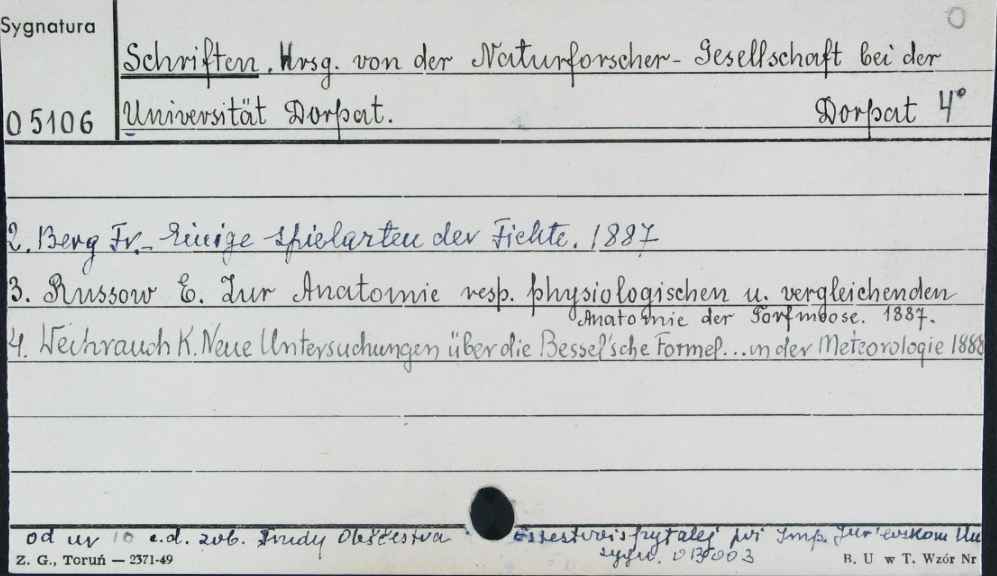 Sygnatura
Schriften. Hrsg. von der Naturforscher- Gesellschaft bei der
05106 Universität Dorpat. Dorpat 4°
2. Berg Fr. Einige Spielarten der Fichte. 1887
3. Russow E. Zur Anatomie resp. physiologischen u. vergleichenden
Anatomie der Torfmoose. 1887.
4. Weihrauch K. Neue Untersuchungen über die Bessel'sche Formel... in der Meteorologie 1888
od nr 10 c.d. zob. Trudy Obščestva pri Imp. Jur'evskom
sygn. 013003
Z. G., Toruń — 2371-49 B. U w T. Wzór Nr